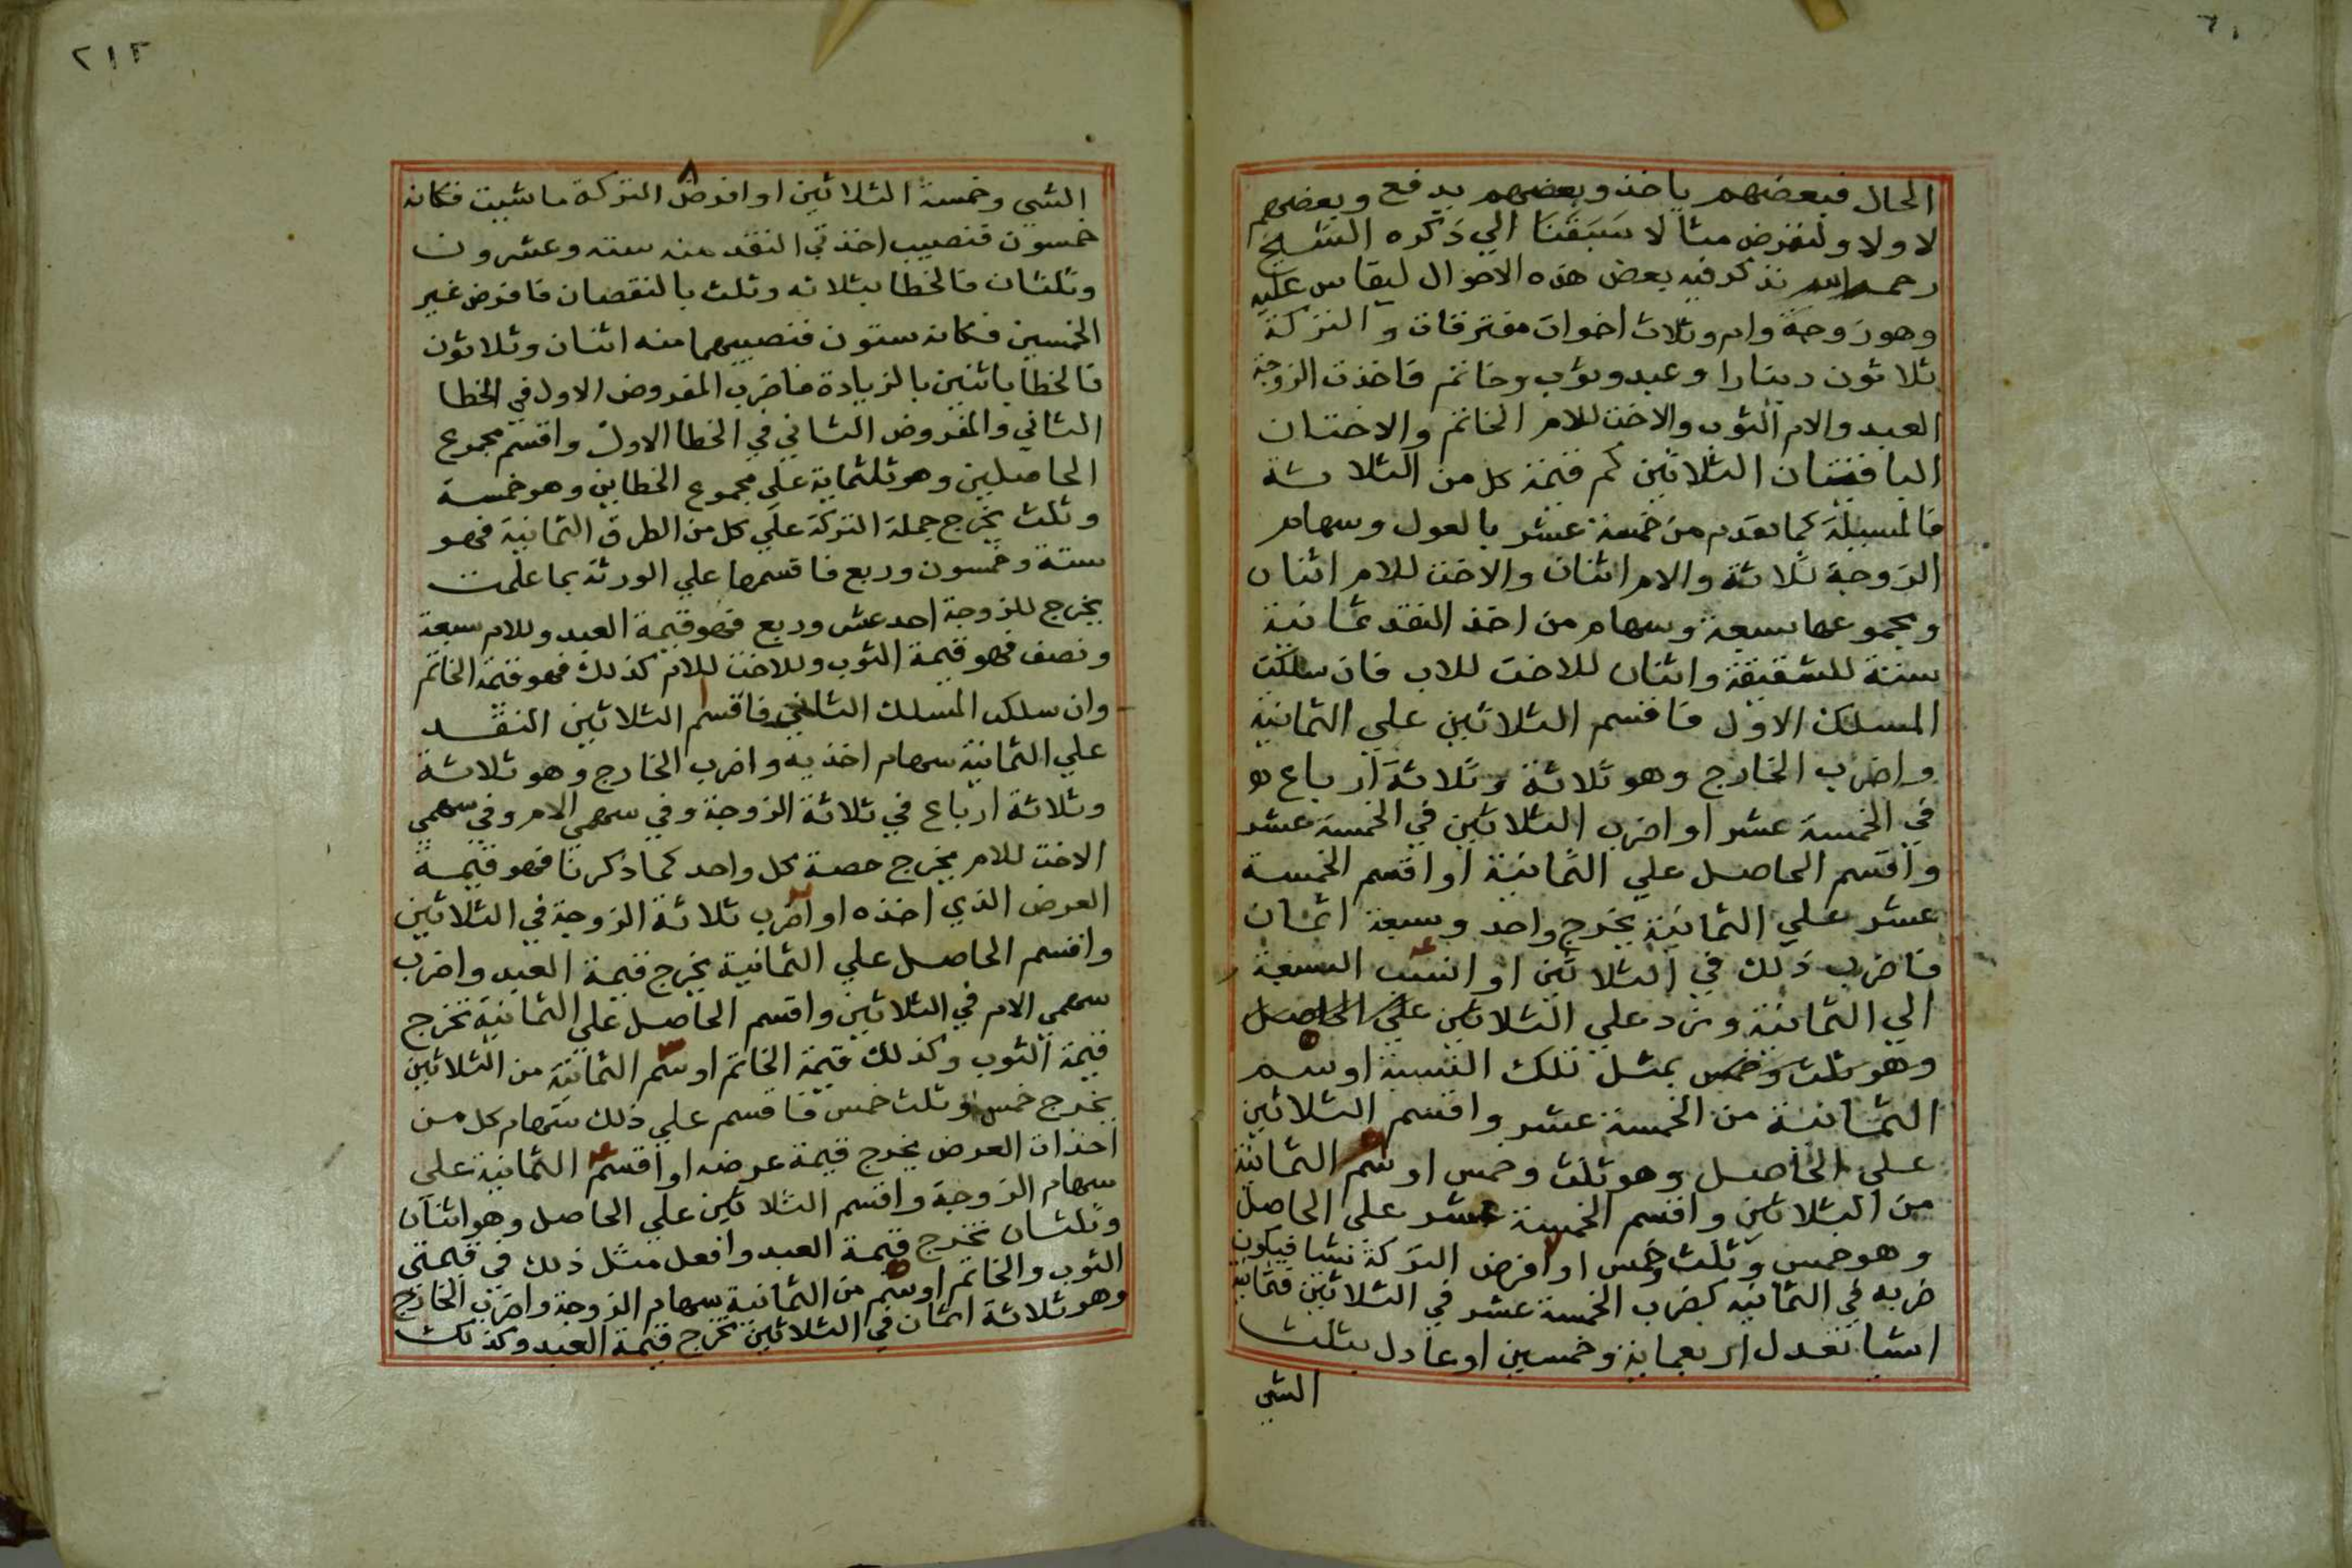 الحال فبعضهم ياخذ وبعضهم يدفع وبعضهم
لا ولا ولنفرض مثالا سبقنا الي ذكره الشيخ
رحمه الله نذكر فيه بعض هذه الاحوال ليقاس عليه
وهو زوجة وام وثلاث اخوات مفترقات والتركة
ثلاثون دينارا وعبد وثوب وخاتم فاخذت الزوجة
العبد والام الثوب والاخت للام الخاتم والاختان
الباقيتان الثلاثين كم قيمة كل من الثلاثة
فالمسيلة كما تقدم من خمسة عشر بالعول وسهام
الزوجة ثلاثة والام اثنان والاخت للام اثنان
ومجموعها سبعة وسهام من اخذ النقد ثمانية
ستة للشقيقة واثنان للاخت للاب فان سلكت
المسلك الاول فاقسم الثلاثين علي الثمانية
واضرب الخارج وهو ثلاثة وثلاثة ارباع
في الخمسة عشر او اضرب الثلاثين في الخمسة عشر
واقسم الحاصل علي الثمانية او اقسم الخمسة
عشر علي الثمانية يخرج واحد وسبعة اثمان
فاضرب ذلك في الثلاثين او انسب السبعة
الي الثمانية وزد علي الثلاثين علي الحاصل
وهو ثلث وخمس بمثل تلك النسبة او سم
الثمانية من الخمسة عشر واقسم الثلاثين
علي الحاصل وهو ثلث وخمس او سم الثمانية
من الثلاثين واقسم الخمسة عشر علي الحاصل
وهو خمس وثلث خمس او افرض التركة شيا فيكون
ضربه في الثمانية كضرب الخمسة عشر في الثلاثين فثمانية
اشيا تعدل اربعماية وخمسين او عادل بثلث
الشي
٢١٢
الشي وخمسة الثلاثين او افرض التركة ما شيت فكانه
خمسون فنصيب اخذتي النقد منه ستة وعشرون
وثلثان فالخطا بثلاثه وثلث بالنقصان فافرض غير
الخمسين فكانه ستون فنصيبهما منه اثنان وثلاثون
فالخطا باثنين بالزيادة فاضرب المفروض الاول في الخطا
الثاني والمفروض الثاني في الخطا الاول واقسم مجموع
الحاصلين وهو ثلثماية علي مجموع الخطاين وهو خمسة
وثلث يخرج جملة التركة علي كل من الطرق الثمانية فهو
ستة وخمسون وربع فاقسمها علي الورثة بما علمت
يخرج للزوجة احد عشر وربع فهو قيمة العبد وللام سبعة
ونصف فهو قيمة الثوب وللاخت للام كذلك فهو قيمة الخاتم
وان سلكت المسلك الثاني فاقسم الثلاثين النقد
علي الثمانية سهام اخذيه واضرب الخارج وهو ثلاثة
وثلاثة ارباع في ثلاثة الزوجة وفي سهمي الام وفي سهمي
الاخت للام يخرج حصة كل واحد كما ذكرنا فهو قيمة
العرض الذي اخذه او اضرب ثلاثة الزوجة في الثلاثين
واقسم الحاصل علي الثمانية يخرج قيمة العبد واضرب
سهمي الام في الثلاثين واقسم الحاصل علي الثمانية تخرج
قيمة الثوب وكذلك قيمة الخاتم او سم الثمانية من الثلاثين
يخرج خمس وثلث خمس فاقسم علي ذلك سهام كل من
اخذات العرض يخرج قيمة عرضه او اقسم الثمانية علي
سهام الزوجة واقسم الثلاثين علي الحاصل وهو اثنان
وثلثان تخرج قيمة العبد وافعل مثل ذلك في قيمتي
الثوب والخاتم او سم من الثمانية سهام الزوجة واضرب الخارج
وهو ثلاثة اثمان في الثلاثين تخرج قيمة العبد وكذلك